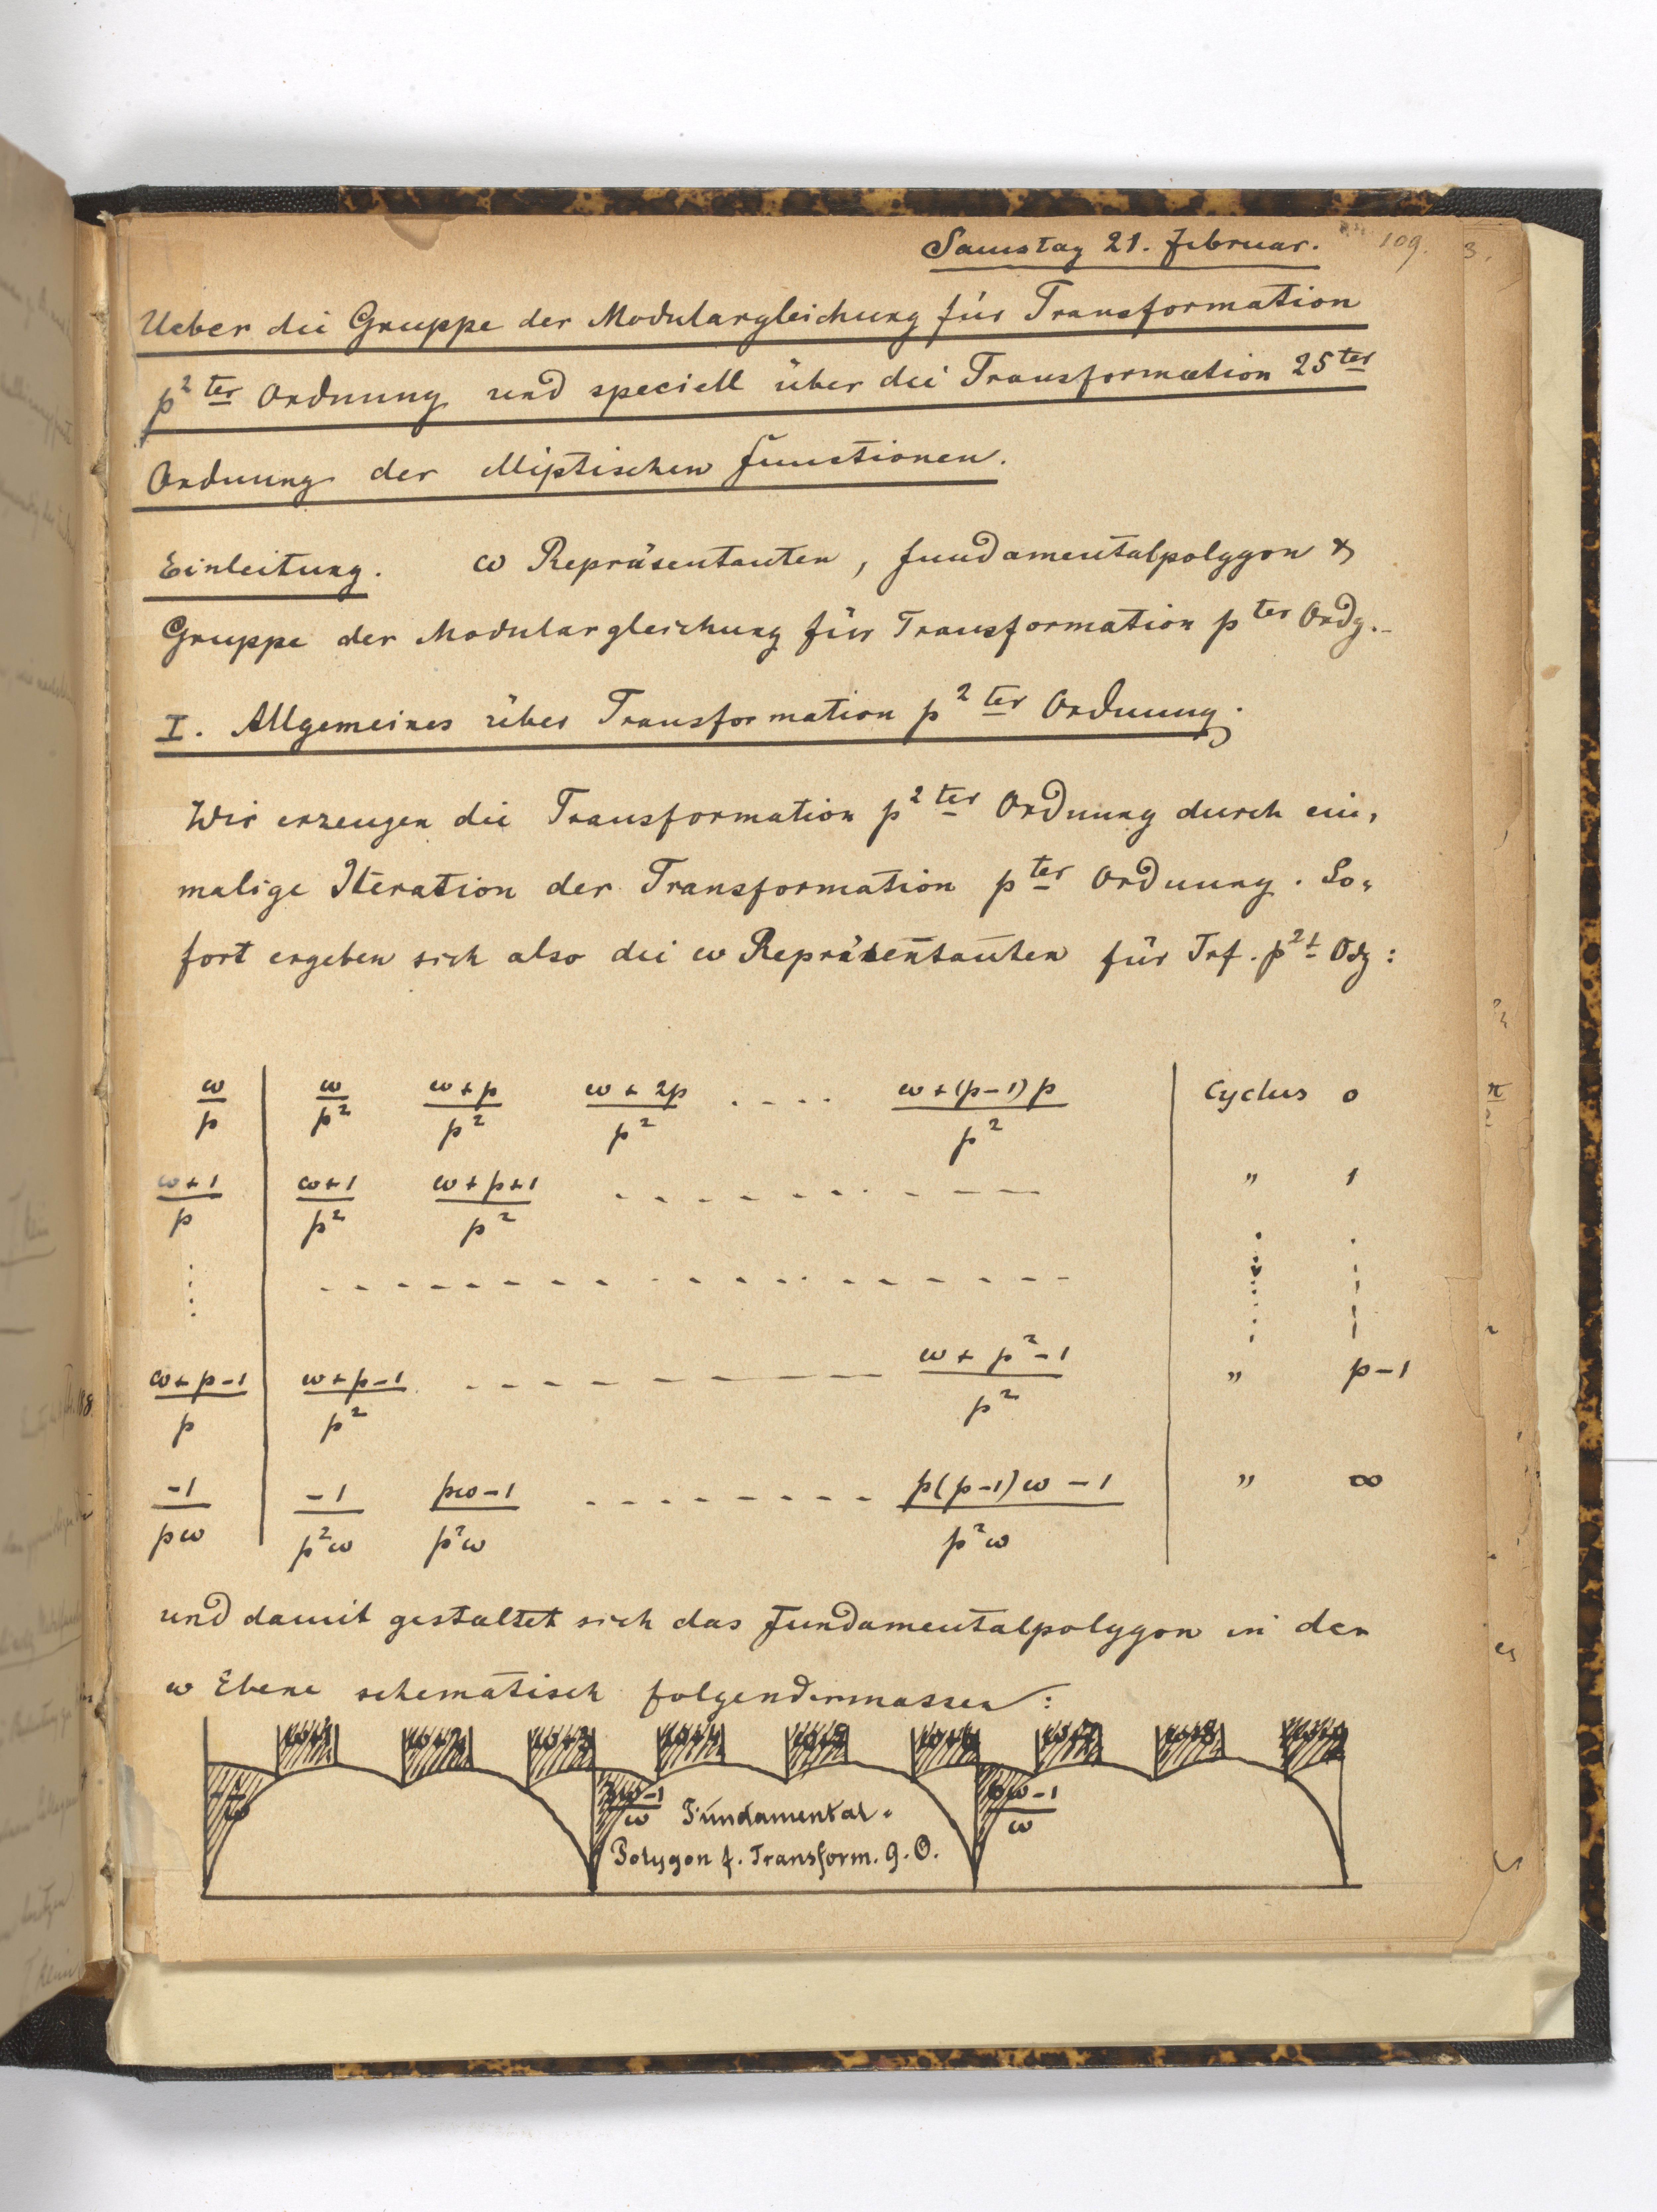 Samstag 21. Februar. 109.
Ueber die Gruppe der Modulargleichung für Transformation
p² ter Ordnung und speciell über die Transformation 25ter
Ordnung der elliptischen Functionen.
Einleitung. ω Repräsentanten, Fundamentalpolygon &
Gruppe der Modulargleichung für Transformation pter Ordg.
I. Allgemeines über Transformation p² ter Ordnung.
Wir erzeugen die Transformation p² ter Ordnung durch ein,
malige Iteration der Transformation pter Ordnung. So,
fort ergeben sich also die ω Repräsentanten für Trf. p²t Odg:
ω/p | ω/p² (ω+p)/p² (ω+2p)/p² .... (ω+(p-1)p)/p² | Cyclus 0
(ω+1)/p | (ω+1)/p² (ω+p+1)/p² ........ | " 1
(ω+p-1)/p | (ω+p-1)/p² ........ (ω+p²-1)/p² | " p-1
-1/pω | -1/p²ω (pω-1)/p²ω ........ (p(p-1)ω-1)/p²ω | " ∞
und damit gestaltet sich das Fundamentalpolygon in der
ω Ebene schematisch folgendermassen:
ω+1 ω+2 ω+3 ω+4 ω+5 ω+6 ω+7 ω+8
(3ω-1)/ω Fundamental- (6ω-1)/ω
Polygon f. Transform. 9. O.